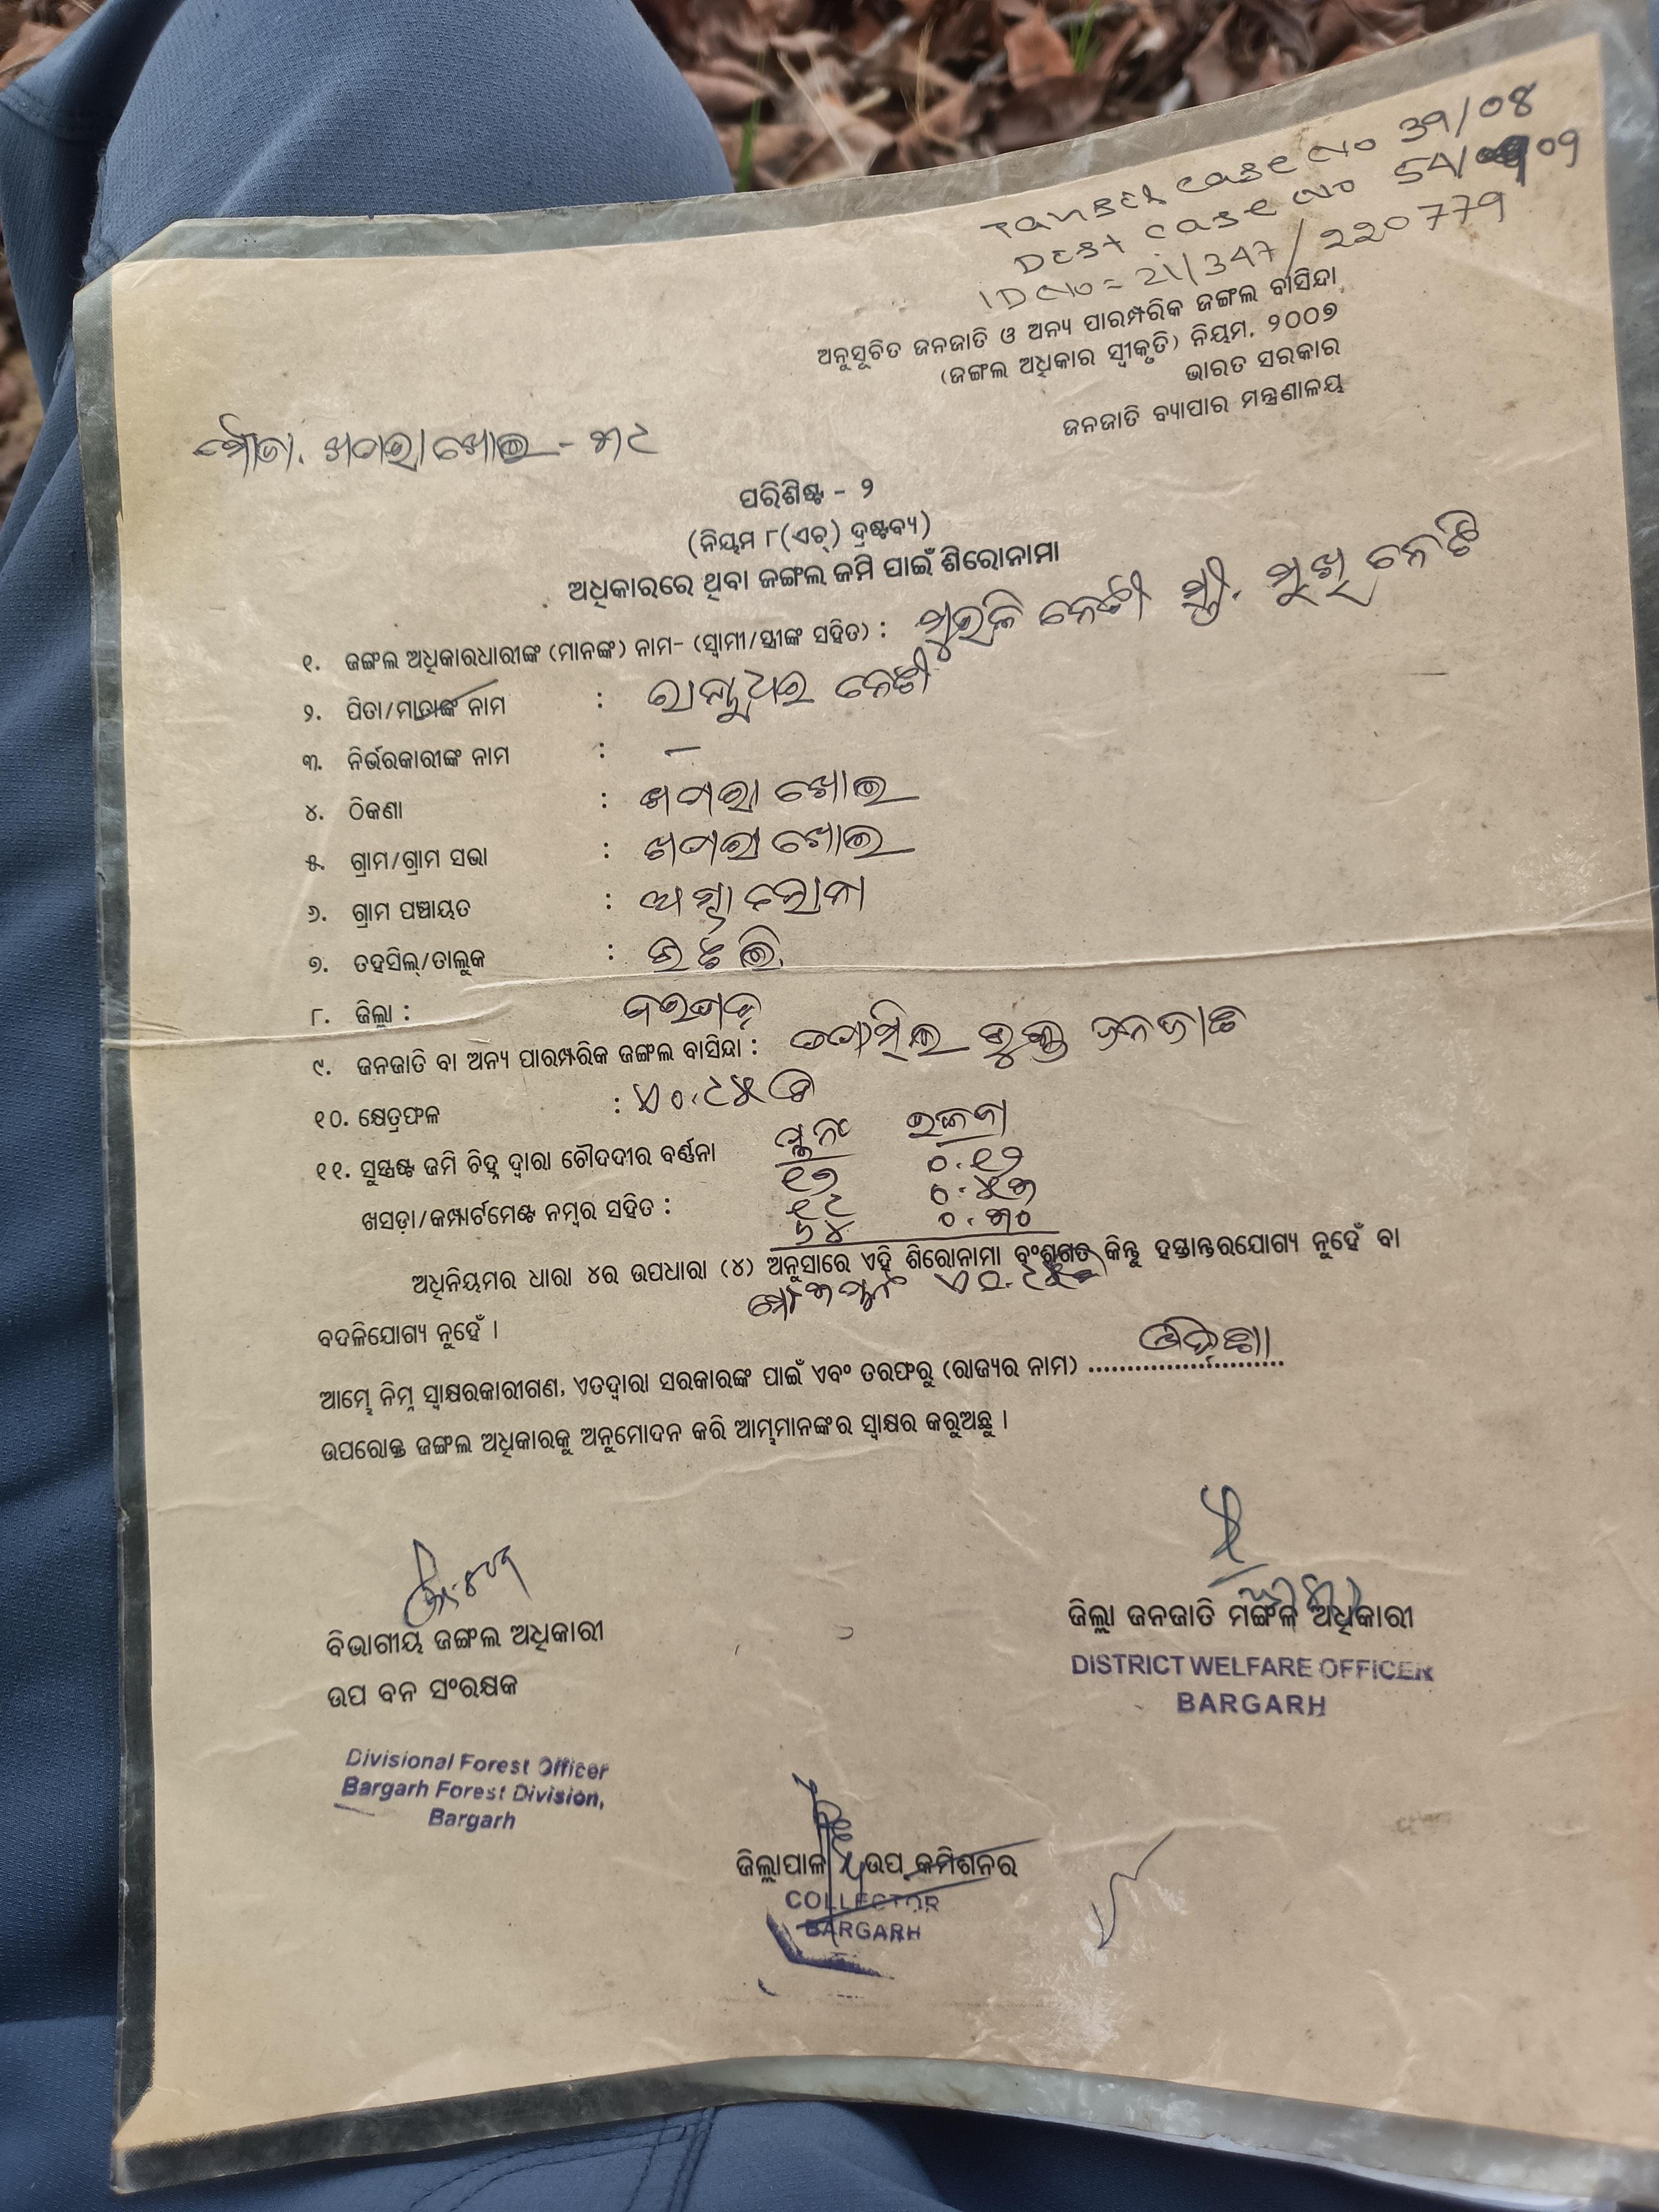 Tahasil case No 39/08
Dist case No 54/09
ID No = 21/347/220779
ଅନୁସୂଚିତ ଜନଜାତି ଓ ଅନ୍ୟ ପାରମ୍ପରିକ ଜଙ୍ଗଲ ବାସିନ୍ଦା
(ଜଙ୍ଗଲ ଅଧିକାର ସ୍ୱୀକୃତି) ନିୟମ, ୨୦୦୭
ଭାରତ ସରକାର
ଜନଜାତି ବ୍ୟାପାର ମନ୍ତ୍ରଣାଳୟ
ମୌଜା. ଖମରାଖୋଲ - ୩୯
ପରିଶିଷ୍ଟ - ୨
(ନିୟମ ୮(ଏଚ୍) ଦ୍ରଷ୍ଟବ୍ୟ)
ଅଧିକାରରେ ଥିବା ଜଙ୍ଗଲ ଜମି ପାଇଁ ଶିରୋନାମା
୧. ଜଙ୍ଗଲ ଅଧିକାରଧାରୀଙ୍କ (ମାନଙ୍କ) ନାମ- (ସ୍ୱାମୀ/ସ୍ତ୍ରୀଙ୍କ ସହିତ) : ମୁରଲି ନେଟୀ ସ୍ତ୍ରୀ.
୨. ପିତା/ମାତାଙ୍କ ନାମ : ନେଟୀ
୩. ନିର୍ଭରକାରୀଙ୍କ ନାମ : –
୪. ଠିକଣା : ଖମରାଖୋଲ
୫. ଗ୍ରାମ/ଗ୍ରାମ ସଭା : ଖମରାଖୋଲ
୬. ଗ୍ରାମ ପଞ୍ଚାୟତ :
୭. ତହସିଲ୍/ତାଲୁକ :
୮. ଜିଲ୍ଲା : ବରଗଡ଼
୯. ଜନଜାତି ବା ଅନ୍ୟ ପାରମ୍ପରିକ ଜଙ୍ଗଲ ବାସିନ୍ଦା : ଜନଜାତି
୧୦. କ୍ଷେତ୍ରଫଳ :
୧୧. ସୁସ୍ପଷ୍ଟ ଜମି ଚିହ୍ନ ଦ୍ୱାରା ଚୌହଦୀର ବର୍ଣ୍ଣନା ପ୍ଲଟ ନଂ ରକବା
ଖସଡ଼ା/କମ୍ପାର୍ଟମେଣ୍ଟ ନମ୍ବର ସହିତ :
୬୪ ୦.୩୦
ଅଧିନିୟମର ଧାରା ୪ର ଉପଧାରା (୪) ଅନୁସାରେ ଏହି ଶିରୋନାମା ବଂଶୁଗତ କିନ୍ତୁ ହସ୍ତାନ୍ତରଯୋଗ୍ୟ ନୁହେଁ ବା
ବଦଳିଯୋଗ୍ୟ ନୁହେଁ ।
ଆମ୍ଭେ ନିମ୍ନ ସ୍ୱାକ୍ଷରକାରୀଗଣ, ଏତଦ୍ୱାରା ସରକାରଙ୍କ ପାଇଁ ଏବଂ ତରଫରୁ (ରାଜ୍ୟର ନାମ) ଓଡ଼ିଶା
ଉପରୋକ୍ତ ଜଙ୍ଗଲ ଅଧିକାରକୁ ଅନୁମୋଦନ କରି ଆମ୍ଭମାନଙ୍କର ସ୍ୱାକ୍ଷର କରୁଅଛୁ ।
ବିଭାଗୀୟ ଜଙ୍ଗଲ ଅଧିକାରୀ
ଉପ ବନ ସଂରକ୍ଷକ
Divisional Forest Officer
Bargarh Forest Division,
Bargarh
ଜିଲ୍ଲା ଜନଜାତି ମଙ୍ଗଳ ଅଧିକାରୀ
DISTRICT WELFARE OFFICER
BARGARH
ଜିଲ୍ଲାପାଳ / ଉପ କମିଶନର
COLLECTOR
BARGARH